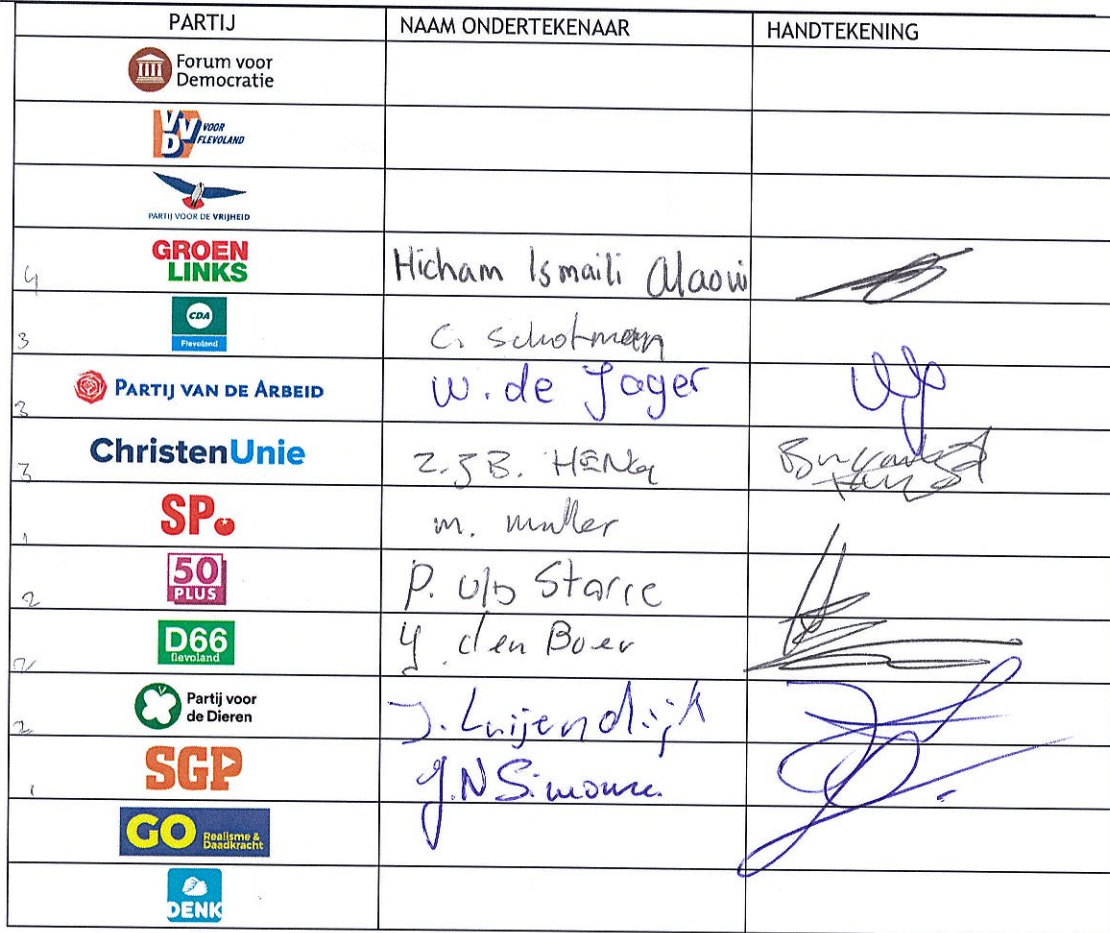 PARTIJ NAAM ONDERTEKENAAR HANDTEKENING
Forum voor
Democratie
VVD VOOR
FLEVOLAND
PARTIJ VOOR DE VRIJHEID
4 GROEN
LINKS Hicham Ismaili Alaoui
3 CDA
Flevoland C. Schotman
3 PARTIJ VAN DE ARBEID W. de Jager
3 ChristenUnie
SP. m. muller
2 50
PLUS P. v/d Starre
2 D66
flevoland Y. den Boer
2 Partij voor
de Dieren J. Luijendijk
1 SGP
GO Realisme &
Daadkracht
DENK